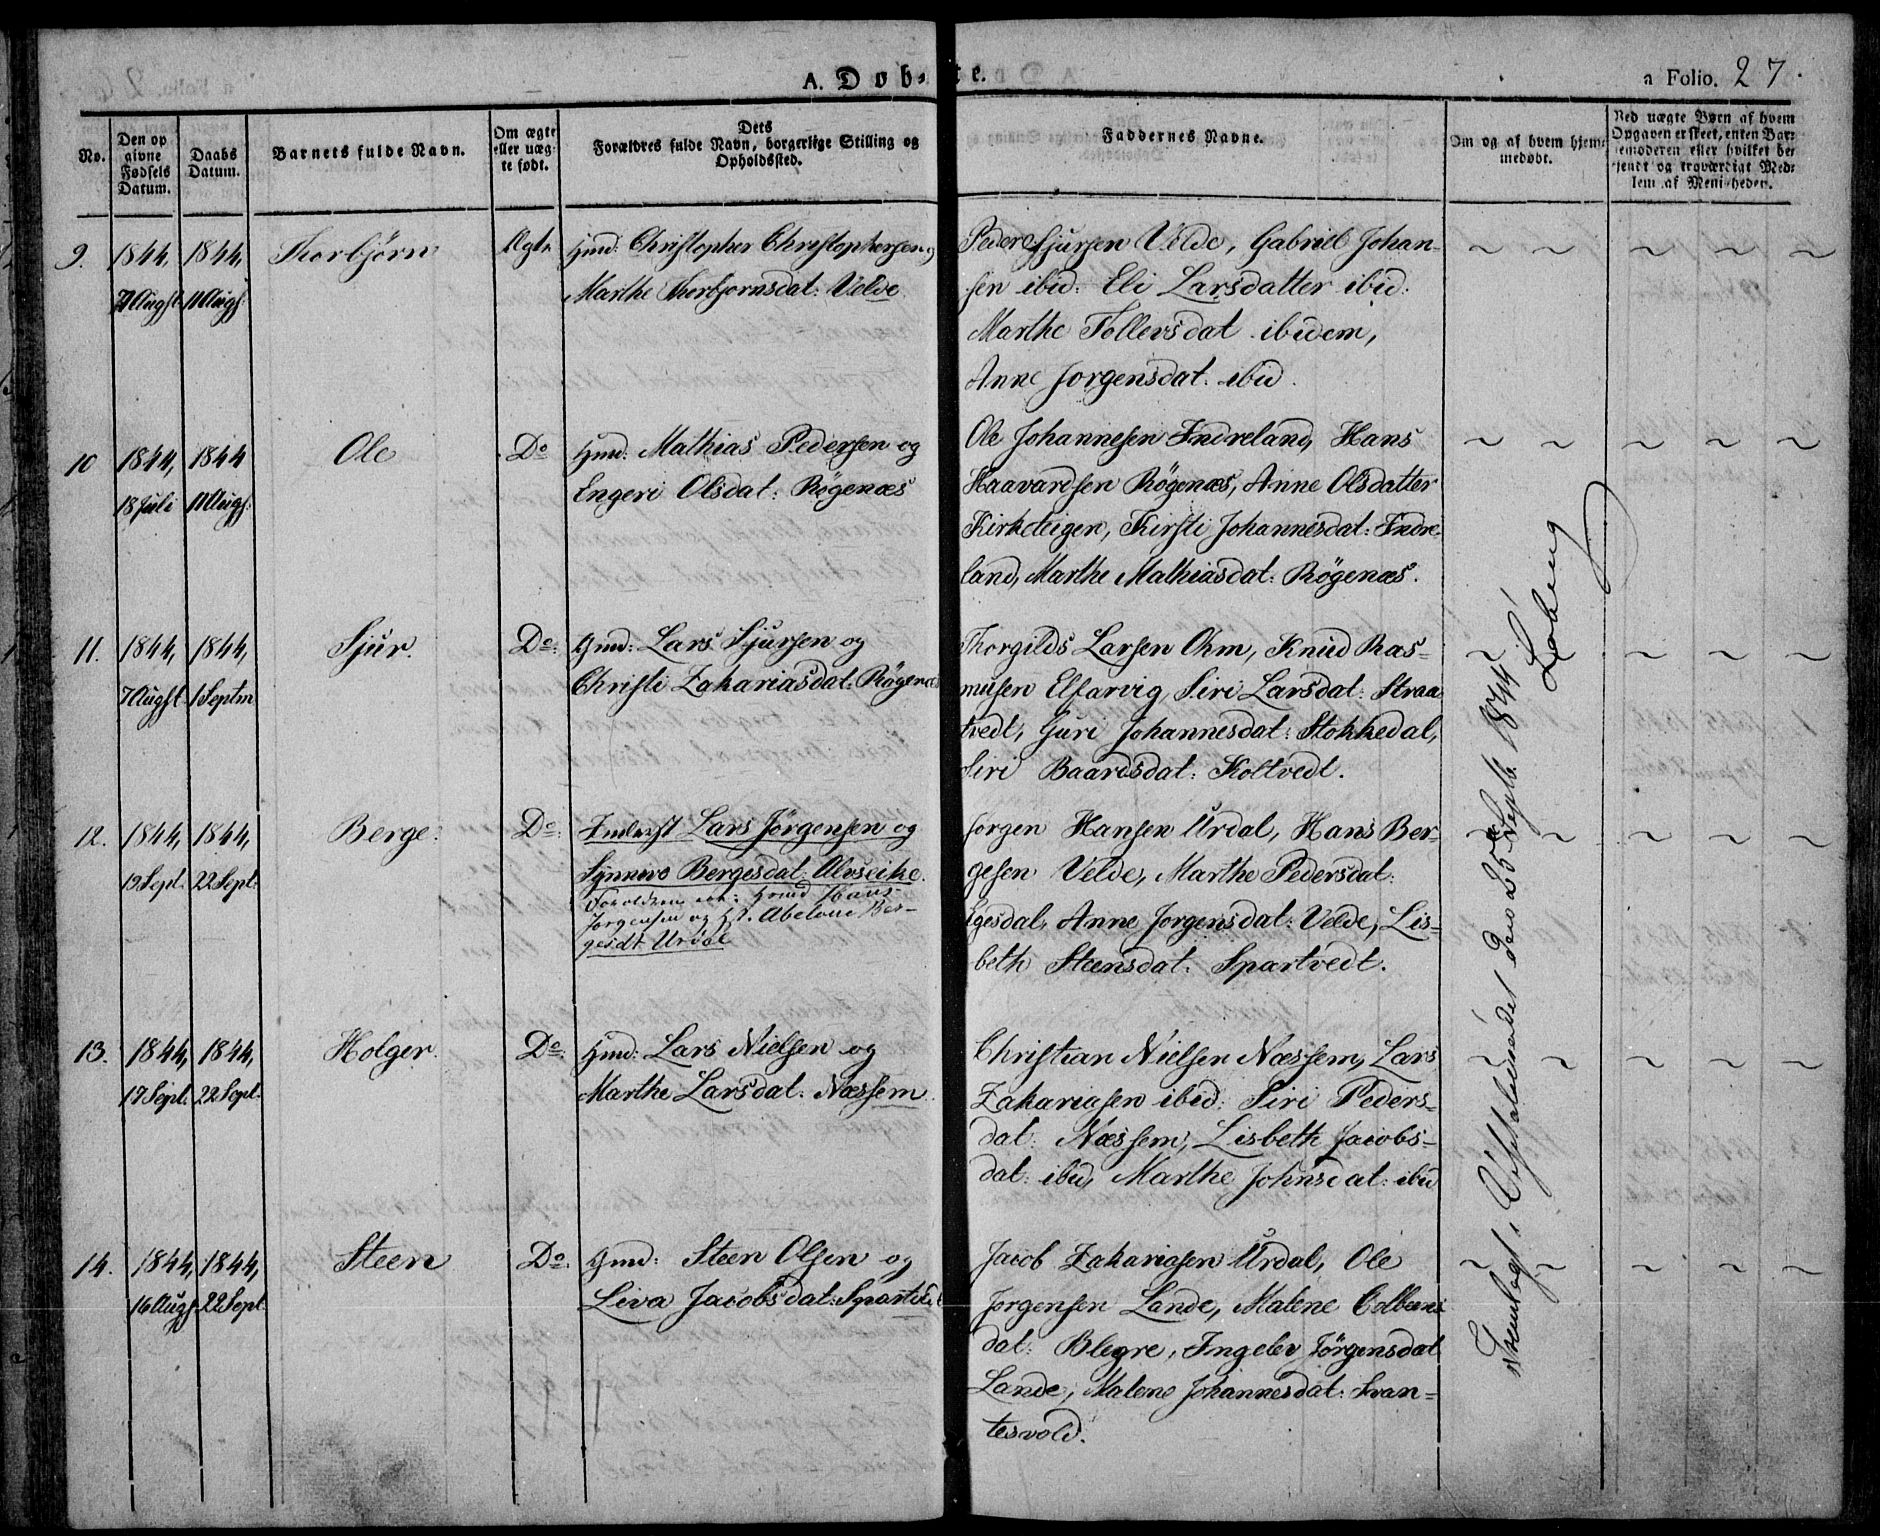 A. Døbte.
a Folio. 27.
No.
Den opgivne Fødsels Datum.
Daabs Datum.
Barnets fulde Navn.
Om ægte eller uægte født.
Dets Forældres fulde Navn, borgerlige Stilling og Opholdssted.
Faddernes Navne.
Om og af hvem hjemmedøbt.
Ved uægte Børn af hvem Opgaven er skeet, enten Barnemoderen eller hvilket bekjendt og troværdigt Medlem af Menigheden.
9. 1844, 1844, Thorbjörn Ægte Gmd: Christopher Christophersen og
Augst. 11 Augs. Marthe Thorbjornsdat: Velde.
Peder Sjursen Velde, Gabriel Johan-
sen ibid: Eli Larsdatter ibid:
Marthe Tollevsdat ibidem,
Anne Jorgensdat. ibid.
10 1844, 1844 Ole Do Gmd: Mathias Pedersen og
18 Juli 11 Augs: Engeri Olsdat: Røgenæs
Ole Johannesen Indreland, Hans
Haavardsen Røgenæs, Anne Olsdatter
Kirketeigen, Kirsti Johannesdat: Indre-
land, Marthe Mathiasdat: Røgenæs.
11. 1844, 1844, Sjur. Do: Gmd: Lars Sjursen og
7 Augst. 1 Septm Christi Zakariasdat: Røgenæs
Thorgilds Larsen Ohm, Knud Ras-
musen Elfarvig, Siri Larsdat: Straa
tvedt, Guri Johannesdat: Stokkedal,
Siri Baardsdat: Koltvedt.
12. 1844, 1844, Berge: Do: Inderst Lars Jörgensen og
19 Sept. 22 Sept: Synneve Bergesdat: Alvseike.
Forældrene Gmd Hans
Jorgensen og Abelone Ber-
gesdt Urdal
Jorgen Hansen Urdal, Hans Ber-
gesen Velde, Marthe Pedersdat:
Egesdal, Anne Jorgensdat: Velde, Lis-
beth Steensdat: Spartvedt.
13. 1844, 1844, Holger. Do: Gmd: Lars Nielsen og
Sept. 22 Sept. Marthe Larsdat: Næssem.
Christian Nielsen Næssem, Lars
Zakariasen ibid: Siri Peders-
dat: Næssem, Lisbeth Jacobs-
dat: ibid, Marthe Johnsdat: ibid
14. 1844, 1844, Steen Do: Gmd: Steen Olsen og
16 Augs 22 Sept. Liva Jacobsdat: Spartved
Jacob Zakariasen Urdal, Ole
Jorgensen Lande, Malene Colbeens
dat: Blegre, Ingelev Jörgensdat
Lande, Malene Johannesdat: Svan-
tesvold.
Fremlagt i Aastædet den 25de Septb. 1844